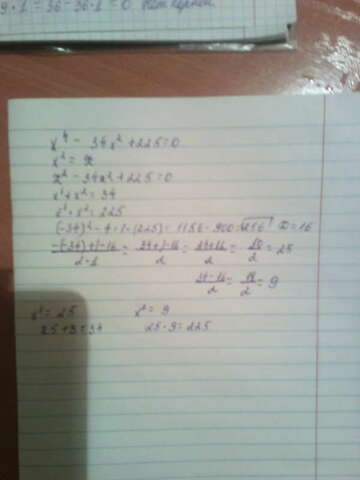 9·1=36-36·1=0. Нет корней.
x⁴ - 34x² + 225=0
x² = x
x² - 34x² + 225=0
x¹+x²=34
x¹·x²=225
(-34)²-4·1·(225)= 1156-900=√256 D=16
-(-34)+√-16/2·1 = 34+√-16/2 = 34+16/2 = 50/2 = 25
34-16/2 = 18/2 = 9
x¹= 25 x²= 9
25+9=34 25·9=225